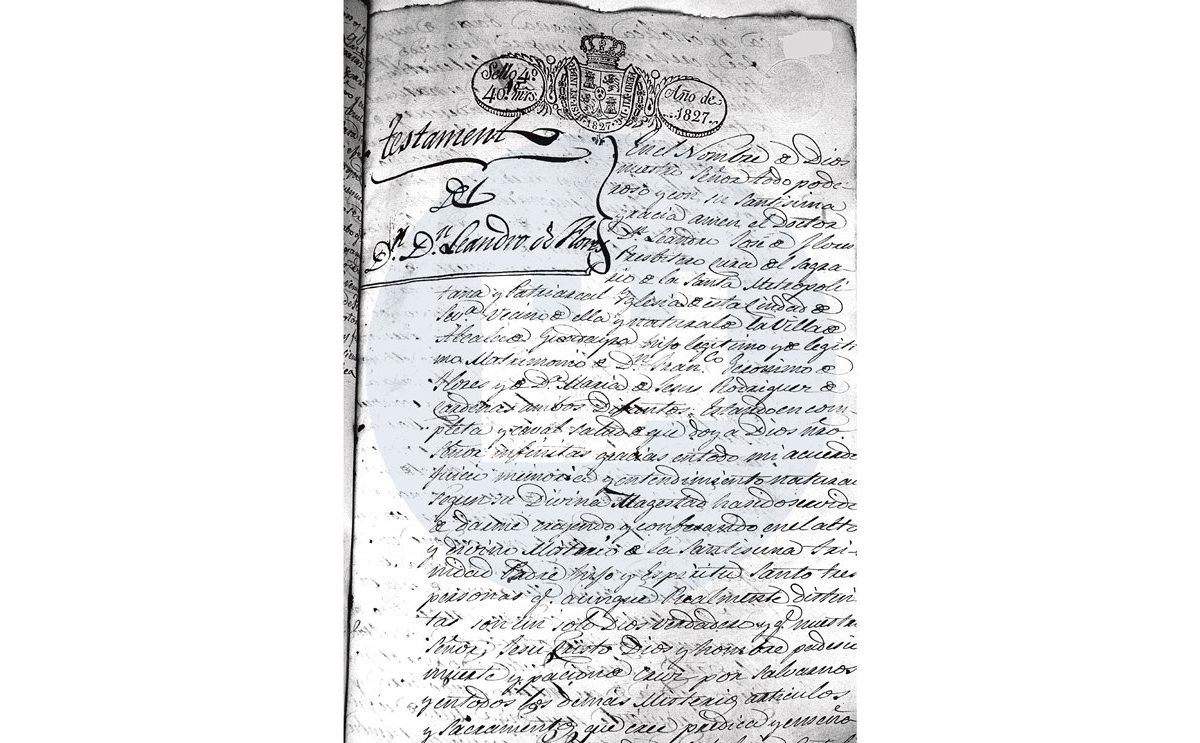 Sello 4º
40. mrs.
HISP. ET IND. R.
1827
Año de
1827.
testament
Del
Dr. Dn. Leandro de Flores
En el Nombre de Dios
nuestro Señor todo pode-
roso y con su santisima
gracia amen el Doctor
Dn. Leandro José de Flores
Presbitero cura del Sagra-
rio de la Santa Metropoli
tana y Patriarcal Yglesia de esta Ciudad de
Seva. Vecino de ella y natural de la Villa de
Alcala de Guadaira hijo legitimo y de legiti
mo Matrimonio de Dn. Franco. Geronimo de
Flores y de Da. Maria de Jesus Rodriguez de
Cardenas ambos Difuntos: Estando en com
pleta y caval salud de que doy a Dios nro.
Señor infinitas gracias en todo mi acuerdo
juicio memoria y entendimiento natural
segun su Divina Magestad ha sido servido
de darme creyendo y confesando en el alto
y divino Misterio de la Santisima Tri-
nidad Padre hijo y Espiritu Santo tres
personas q. aunque Realmente distin
tas son un solo Dios verdadero y q. nuestro
Señor Jesu Cristo Dios y hombre padecio
muerte y pacion de Cruz por salvarnos
y en todos los demas Misterios articulos
y Sacramentos que cree predica y enseña